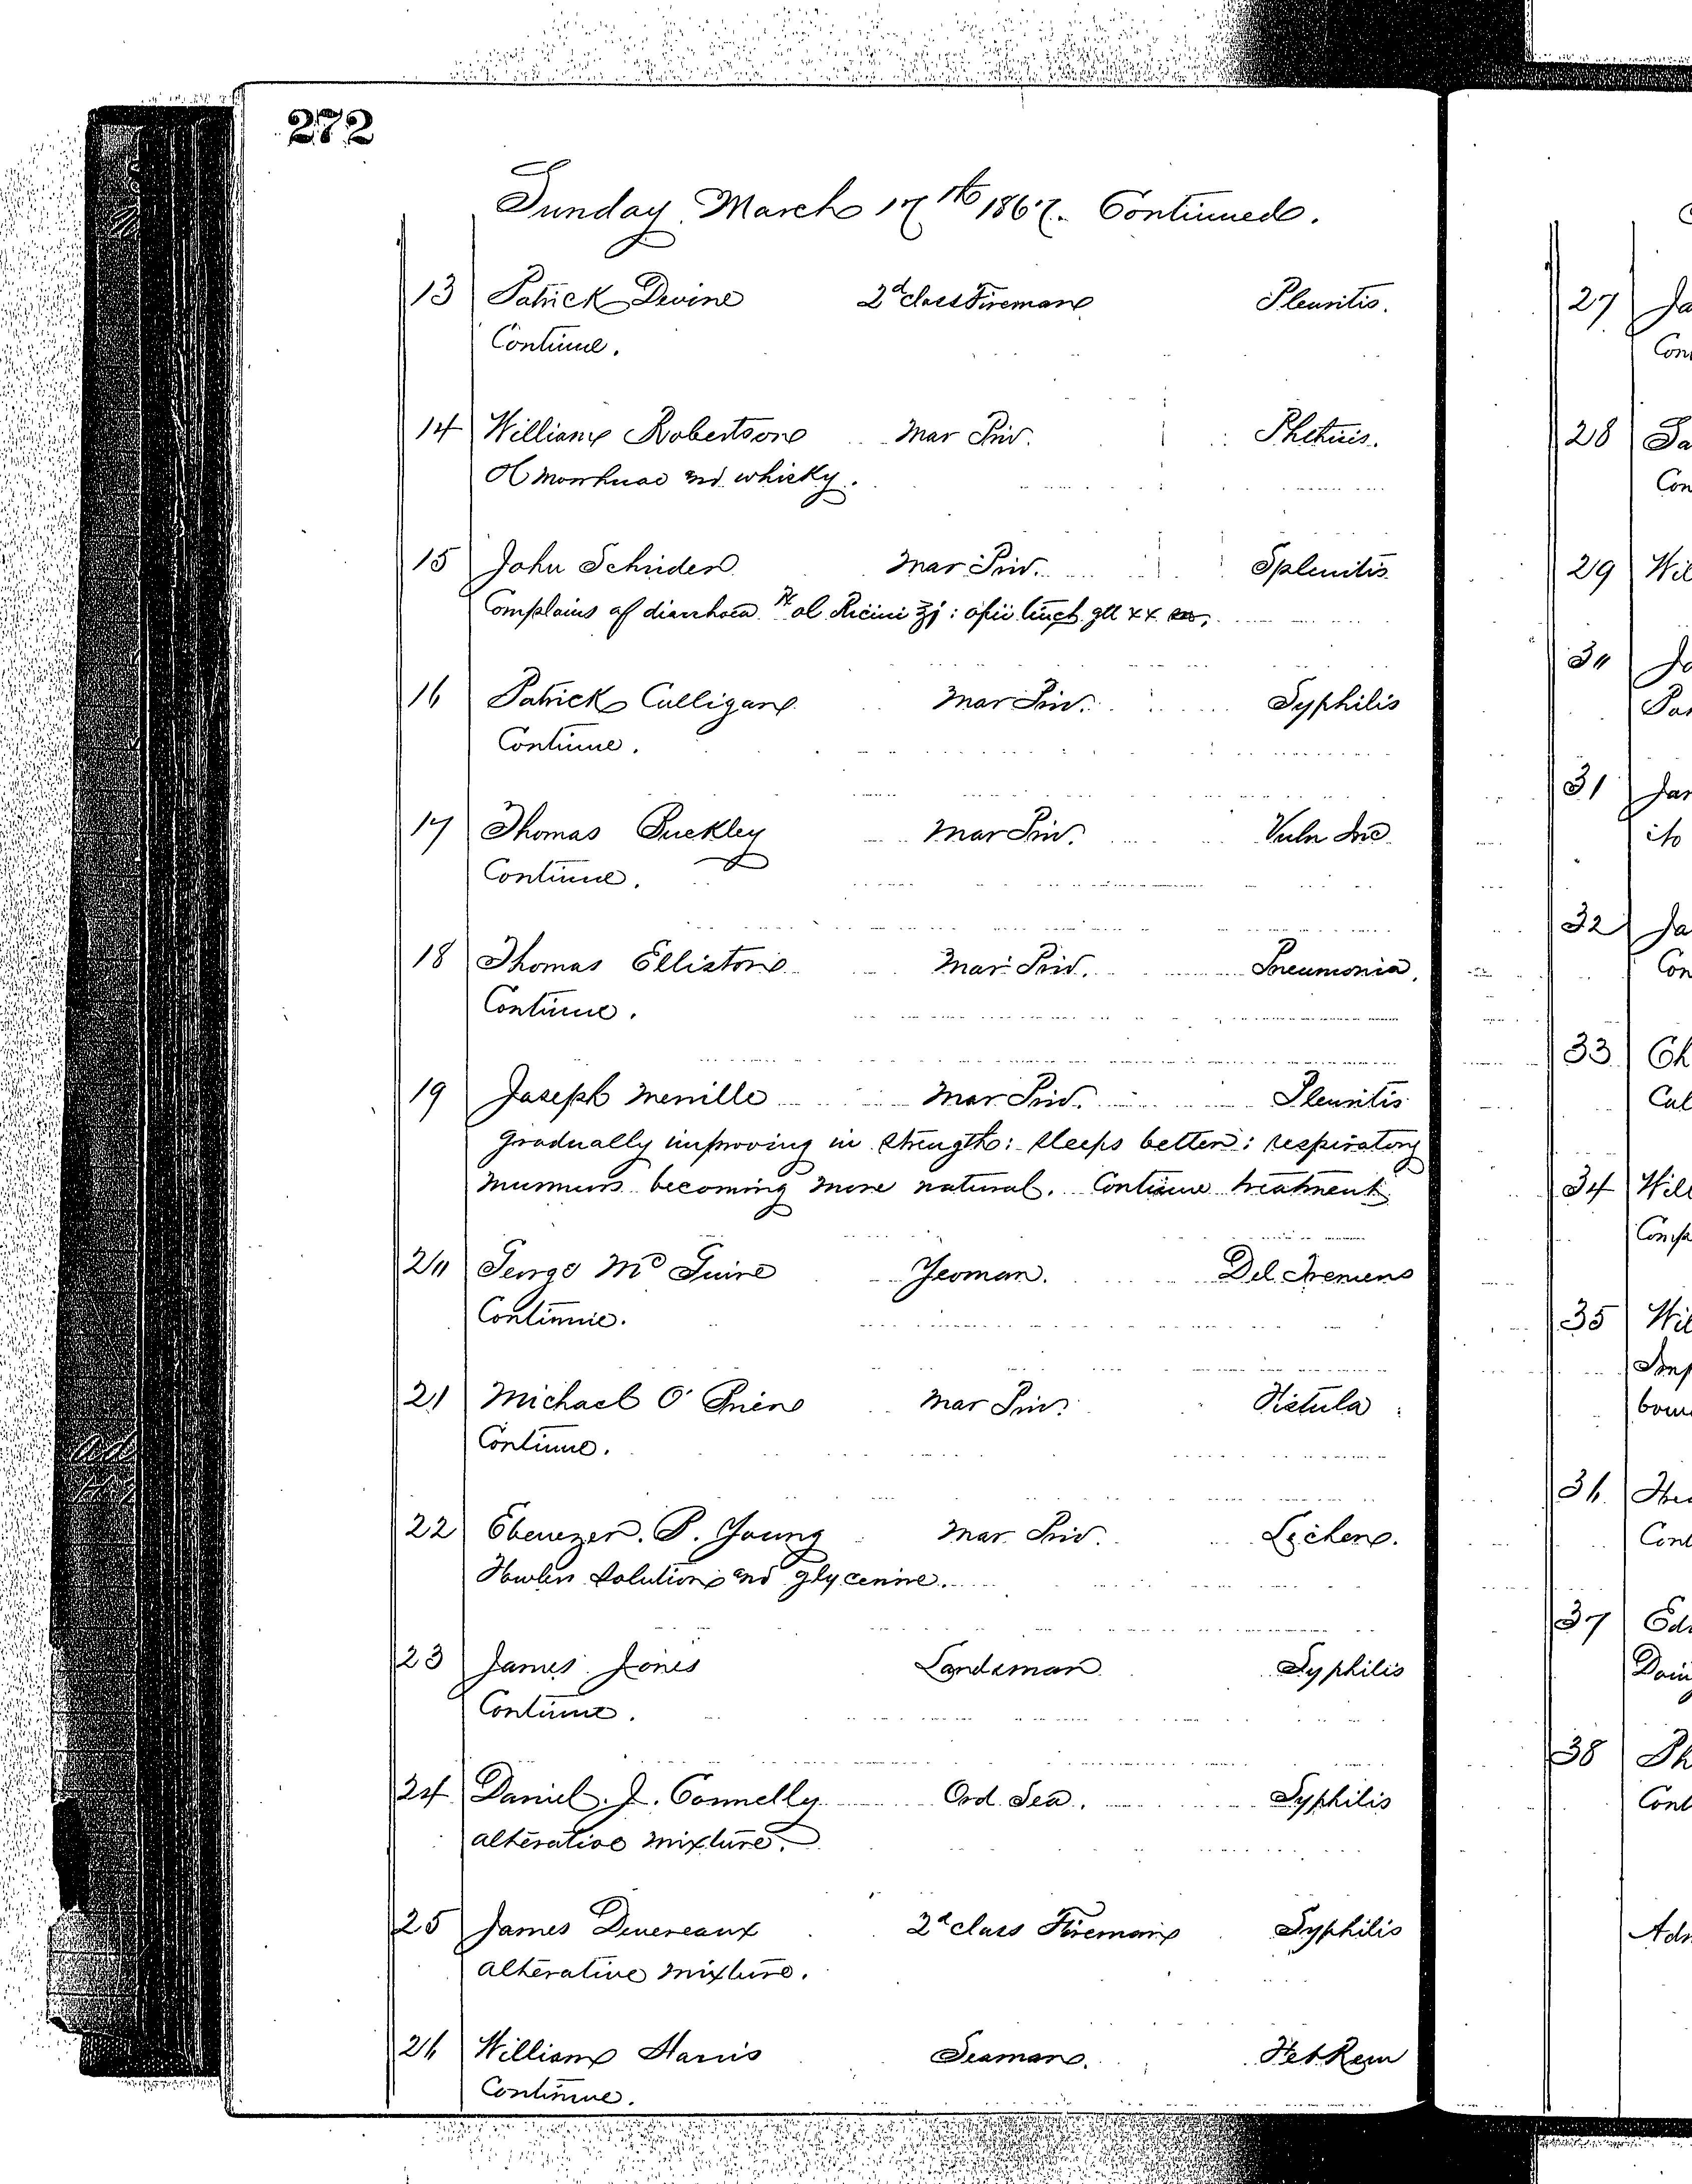 272
Sunday March 17th 1867. Continued.
13 Patrick Devine 2d class Fireman Pleuritis.
Continue.
14 William Robertson Mar Priv. Phthisis.
Ol Morrhuae and whisky.
15 John Schrider Mar Priv. Splenitis
Complains of diarrhoea ℞ ol Ricini ℥j: opii tinct gtt xx
16 Patrick Culligan Mar Priv. Syphilis
Continue.
17 Thomas Buckley Mar Priv. Vuln Inc
Continue.
18 Thomas Elliston Mar Priv. Pneumonia.
Continue.
19 Joseph Menille Mar Priv. Pleuritis
gradually improving in strength: sleeps better: respiratory
murmurs becoming more natural. Continue treatment
20 George McGuire Yeoman. Del Tremens
Continue.
21 Michael O'Brien Mar Priv. Fistula
Continue.
22 Ebenezer. P. Young Mar Priv. Lichen.
Fowlers Solution and glycerine.
23 James Jones Landsman Syphilis
Continue.
24 Daniel. J. Connelly Ord Sea. Syphilis
alterative mixture.
25 James Devereaux 2d class Fireman Syphilis
alterative mixture.
26 William Harris Seaman. Feb Rem
Continue.
27 Ja
Con
28
Con
29 Wil
30 Jo
31 Jam
32 Ja
Con
33 Ch
Cal
34 Will
Comp
35 Wil
Imp
bow
36
Cont
37 Ed
Doin
38
Cont
Adm